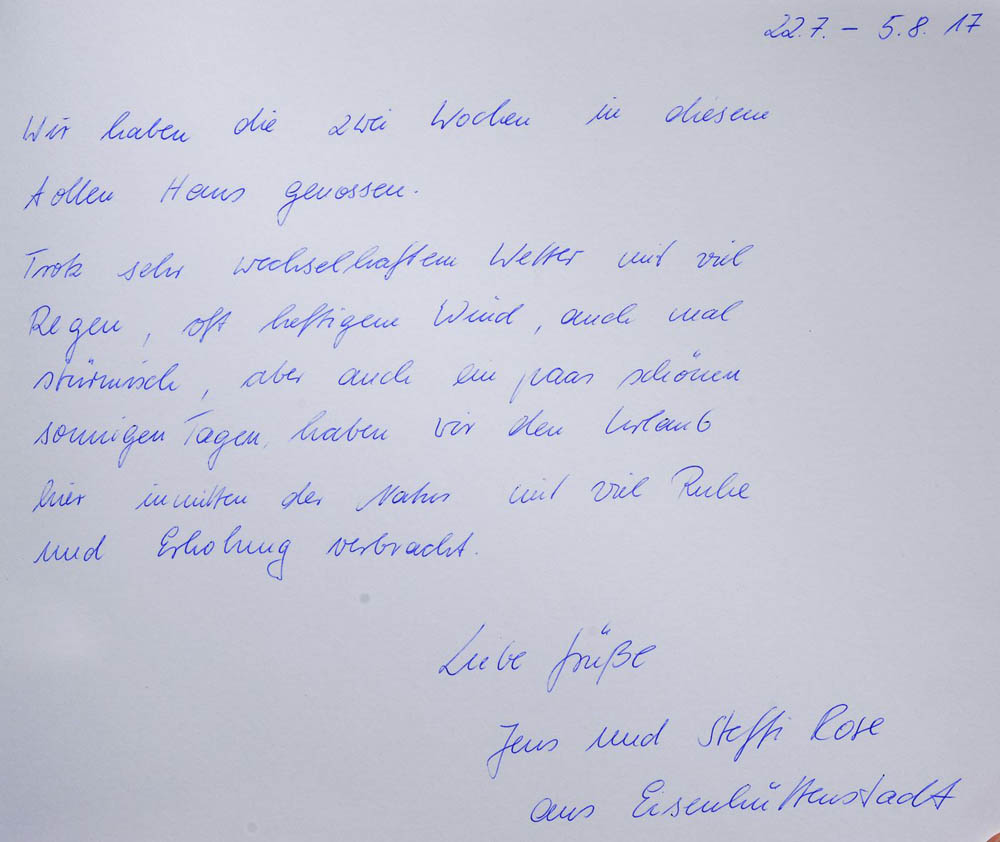 22.7. – 5.8. 17
Wir haben die zwei Wochen in diesem
tollen Haus genossen.
Trotz sehr wechselhaftem Wetter mit viel
Regen, oft heftigem Wind, auch mal
stürmisch, aber auch ein paar schönen
sonnigen Tagen, haben wir den Urlaub
hier inmitten der Natur mit viel Ruhe
und Erholung verbracht.
Liebe Grüße
Jens und Steffi Rose
aus Eisenhüttenstadt